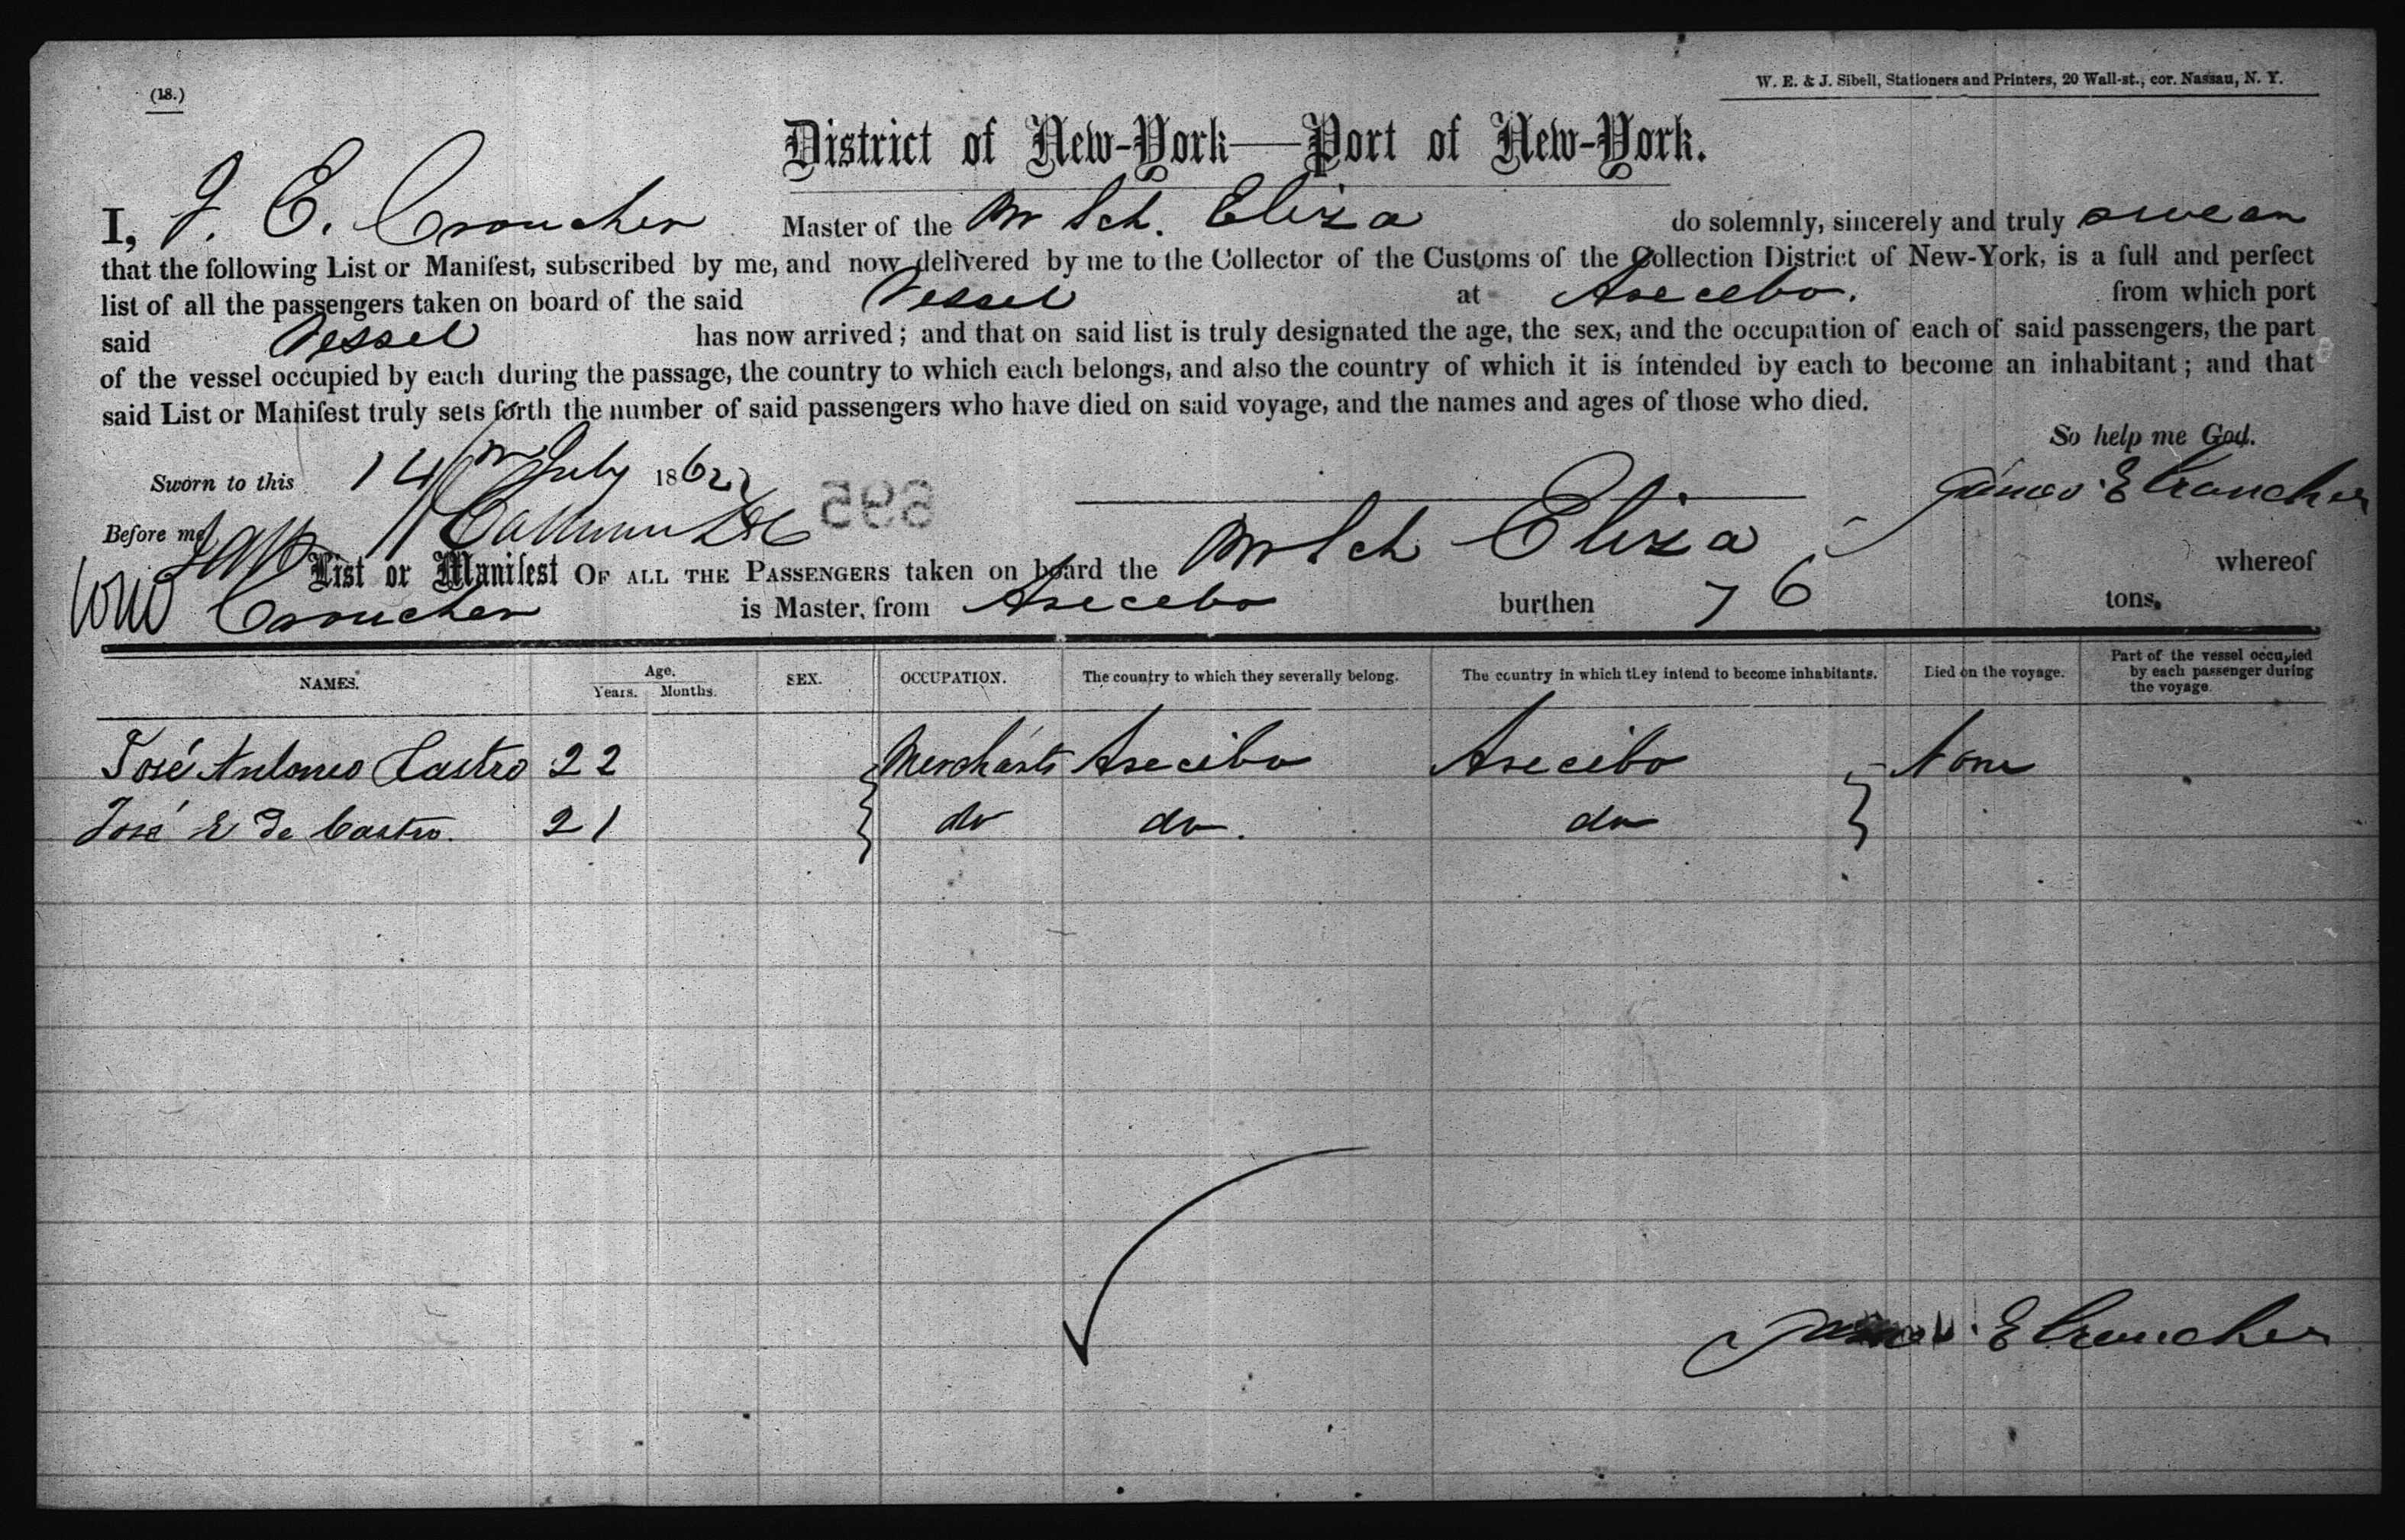 (18.)
W. E. & J. Sibell, Stationers and Printers, 20 Wall-st., cor. Nassau, N. Y.
District of New-York—Port of New-York.
I, J. E. Croucher Master of the Br Sch. Eliza do solemnly, sincerely and truly swear
that the following List or Manifest, subscribed by me, and now delivered by me to the Collector of the Customs of the Collection District of New-York, is a full and perfect
list of all the passengers taken on board of the said Vessel at Arecebo. from which port
said Vessel has now arrived; and that on said list is truly designated the age, the sex, and the occupation of each of said passengers, the part
of the vessel occupied by each during the passage, the country to which each belongs, and also the country of which it is intended by each to become an inhabitant; and that
said List or Manifest truly sets forth the number of said passengers who have died on said voyage, and the names and ages of those who died.
So help me God.
Sworn to this 14th July 1862
James E Croucher
Before me
595
List or Manifest OF ALL THE PASSENGERS taken on board the Br Sch Eliza whereof
Croucher is Master, from Arecebo burthen 76 tons.
NAMES. Age. Years. Months. SEX. OCCUPATION. The country to which they severally belong. The country in which they intend to become inhabitants. Died on the voyage. Part of the vessel occupied by each passenger during the voyage.
José Antonio Castro 22 Merchants Arecibo Arecibo None
José E de Castro. 21 do do. do
James E Croucher